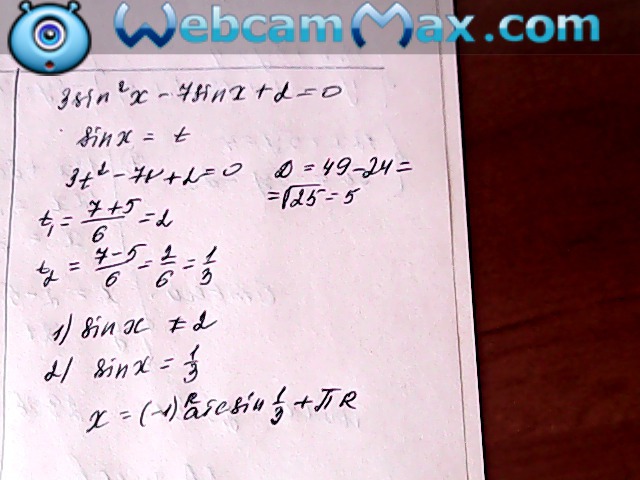 WebcamMax.com
3sin²x - 7sinx + 2 = 0
sinx = t
3t² - 7t + 2 = 0 D = 49 - 24 =
= √25 = 5
t₁ = (7+5)/6 = 2
t₂ = (7-5)/6 = 2/6 = 1/3
1) sinx ≠ 2
2) sinx = 1/3
x = (-1)ᵏ arcsin 1/3 + πk